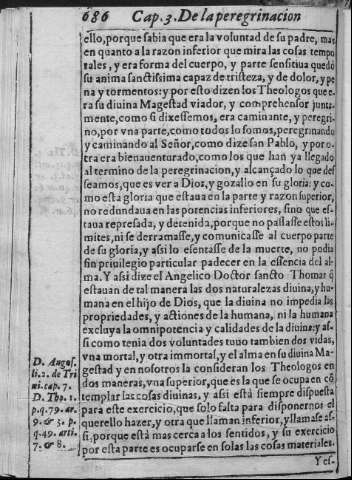 686 Cap. 3. De la peregrinacion
ello, porque sabia que era la voluntad de su padre, mas
en quanto a la razon inferior que mira las cosas tempo
rales, y era forma del cuerpo, y parte sensitiua quedó
su anima sanctissima capaz de tristeza, y de dolor, y pe
na y tormentos: y por esto dizen los Theologos que e-
ra su diuina Magestad viador, y comprehensor junta-
mente, como si dixessemos, era caminante, y peregri-
no, por vna parte, como todos lo somos, peregrinando
y caminando al Señor, como dize san Pablo, y por o-
tra era bienauenturado, como los que han ya llegado
al termino de la peregrinacion, y alcançado lo que des
seamos, que es ver a Dios, y gozallo en su gloria: y co-
mo esta gloria que estaua en la parte y razon superior,
no redundaua en las potencias inferiores, sino que es-
taua represada, y detenida, porque no passasse estos li-
mites, ni se derramasse, y comunicasse al cuerpo parte
de su gloria, y assi lo esentasse de la muerte, no podia
sin priuilegio particular padecer en la essencia del al-
ma. Y assi dize el Angelico Doctor sancto Thomas q̃
estauan de tal manera las dos naturalezas diuina, y hu-
mana en el hijo de Dios, que la diuina no impedia las
propriedades, y actiones de la humana, ni la humana
excluya la omnipotencia y calidades de la diuina: y as-
si como tenia dos voluntades tuuo tambien dos vidas,
vna mortal, y otra immortal, y el alma en su diuina Ma-
gestad y en nosotros la consideran los Theologos en
dos maneras, vna superior, que es la que se ocupa en cõ
templar las cosas diuinas, y assi está siempre dispuesta
para este exercicio, que solo falta para disponernos el
querello hazer, y otra que llaman inferior, y llamase as-
si, porque está mas cerca a los sentidos, y su exercicio
por esta parte es ocuparse en solas las cosas materiales.
Y es-
D. Augus.
li. 2. de Tri
ni. cap. 7.
D. Tho. 1.
p. q. 79. ar.
9. & 3. p.
q. 49. arti.
7. & 8.